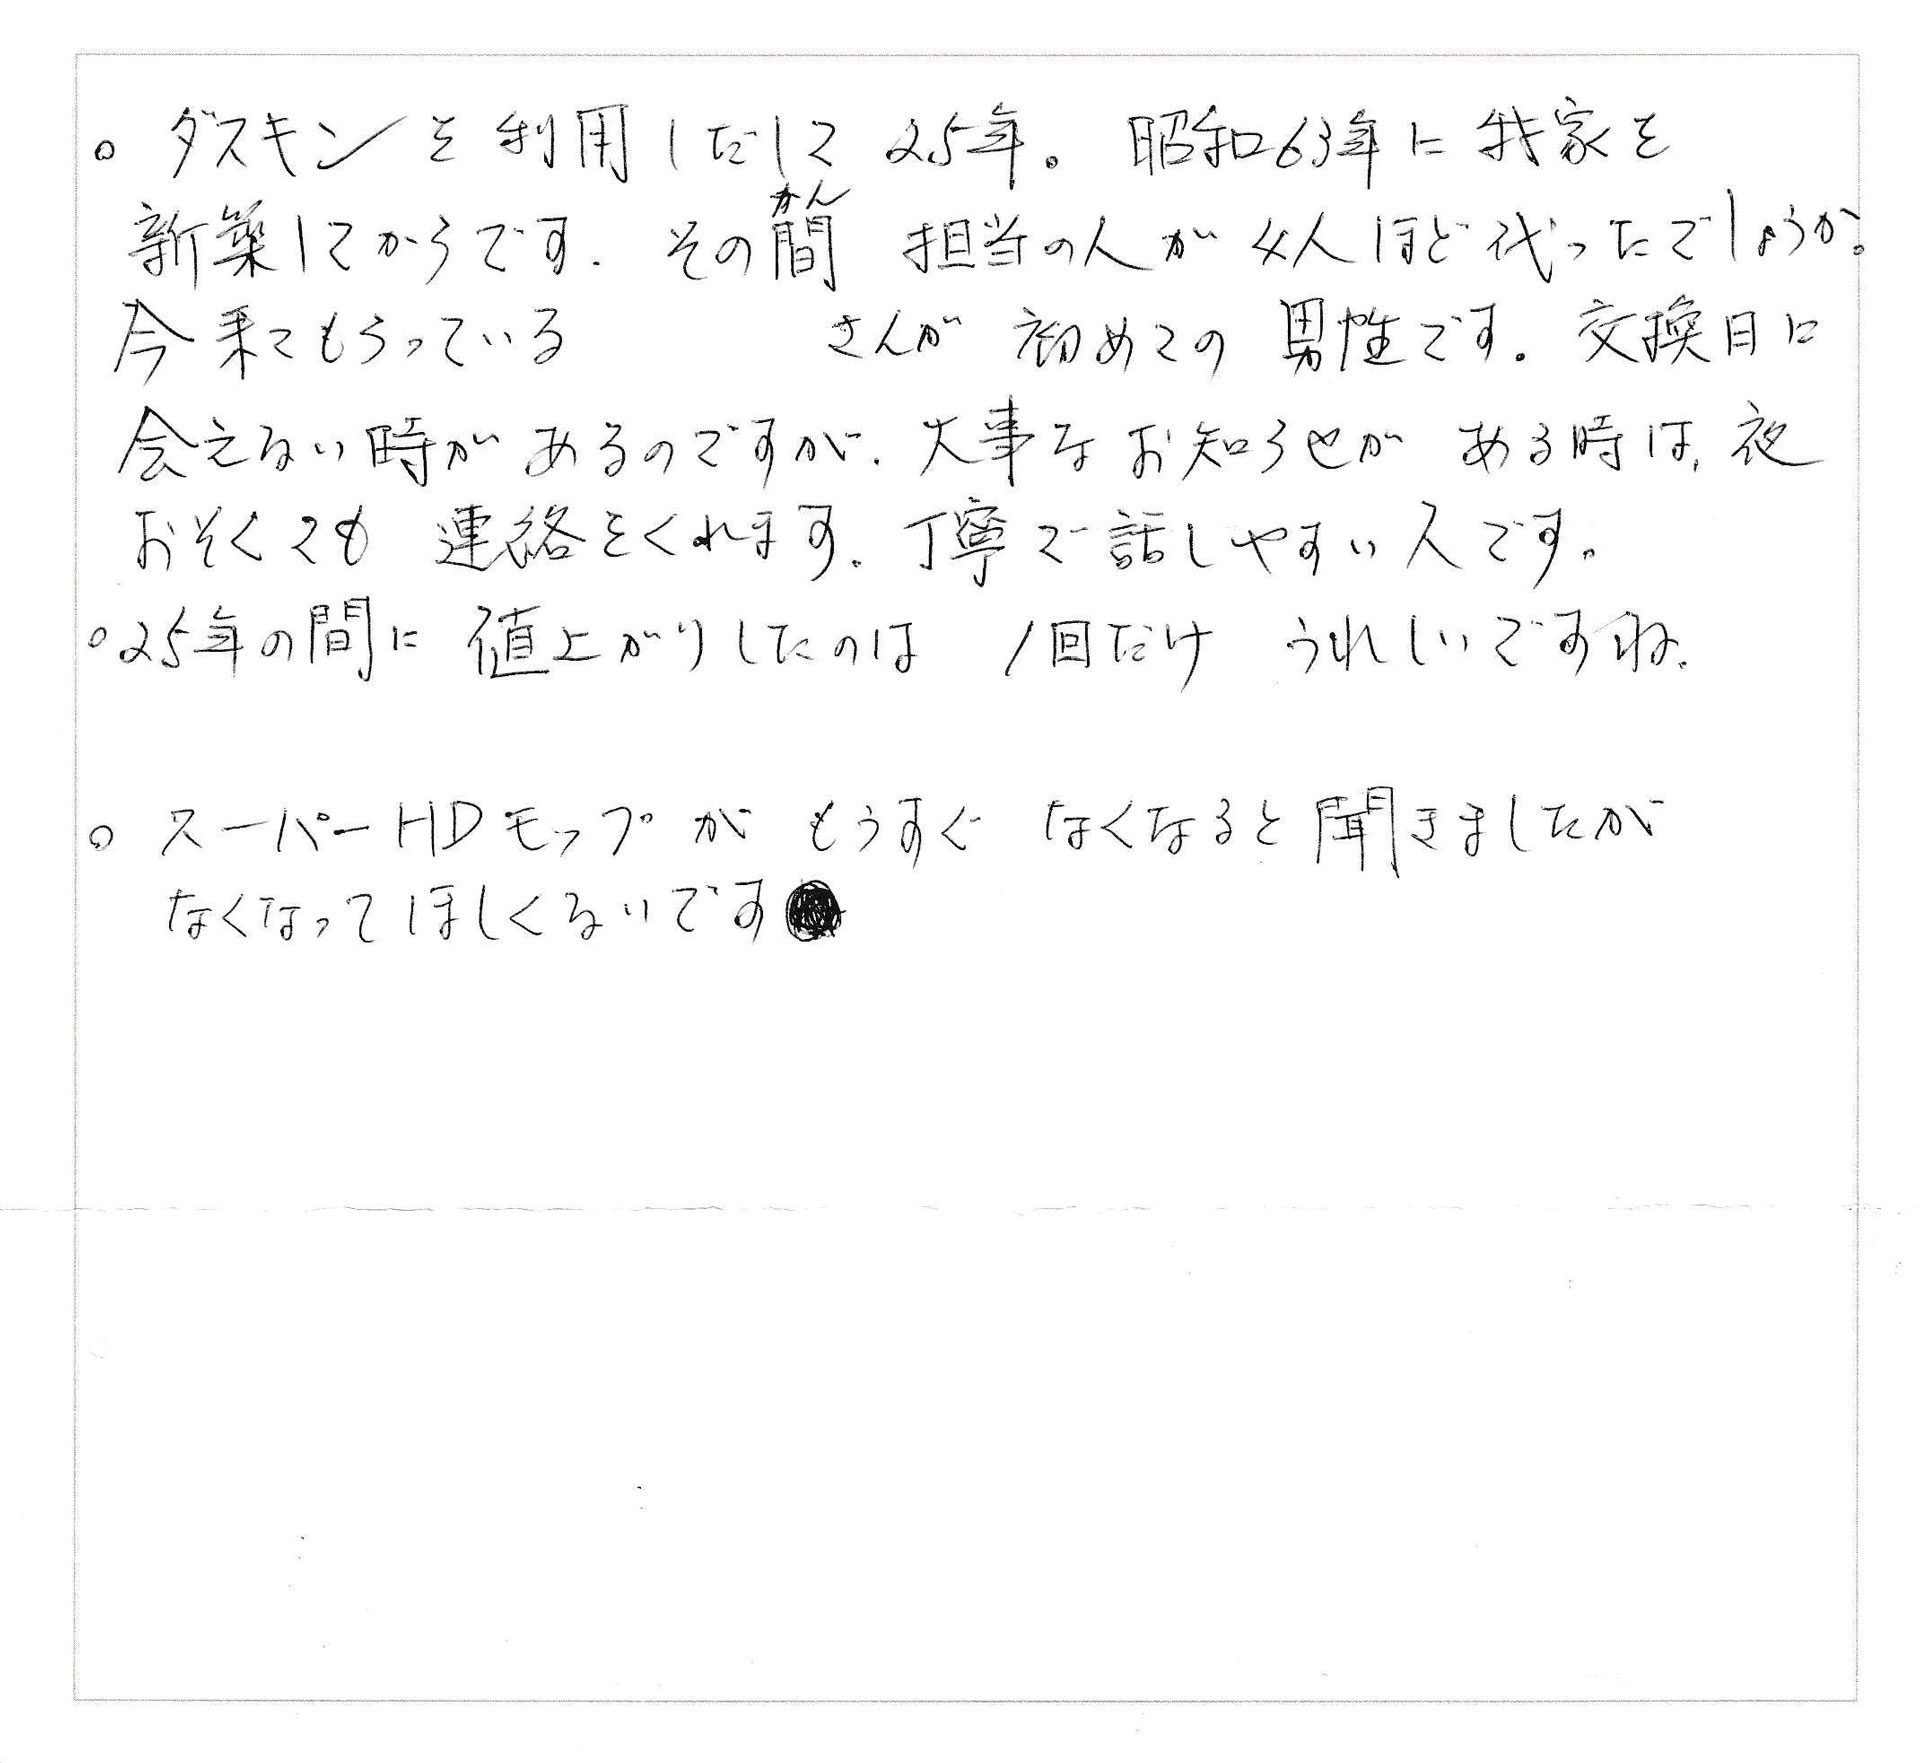 ○ ダスキンを利用しだして25年。昭和63年に我家を
新築してからです。その間(かん) 担当の人が4人ほど代ったでしょうか。
今来てもらっている さんが 初めての男性です。交換日に
会えない時があるのですが、大事なお知らせが ある時は、夜
おそくても 連絡をくれます。丁寧で話しやすい人です。
○25年の間に 値上がりしたのは 1回だけ うれしいですね。
○ スーパーHDモップが もうすぐ なくなると聞きましたが
なくなってほしくないです